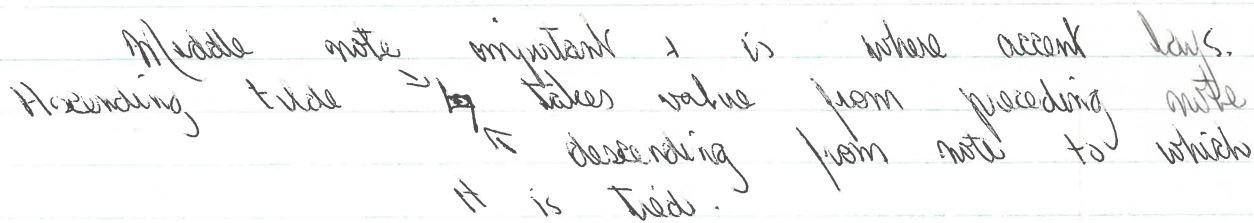 Middle note important + is where accent lays.
Ascending tilde ~ takes value from preceding note
~ descending from note to which
it is tied.